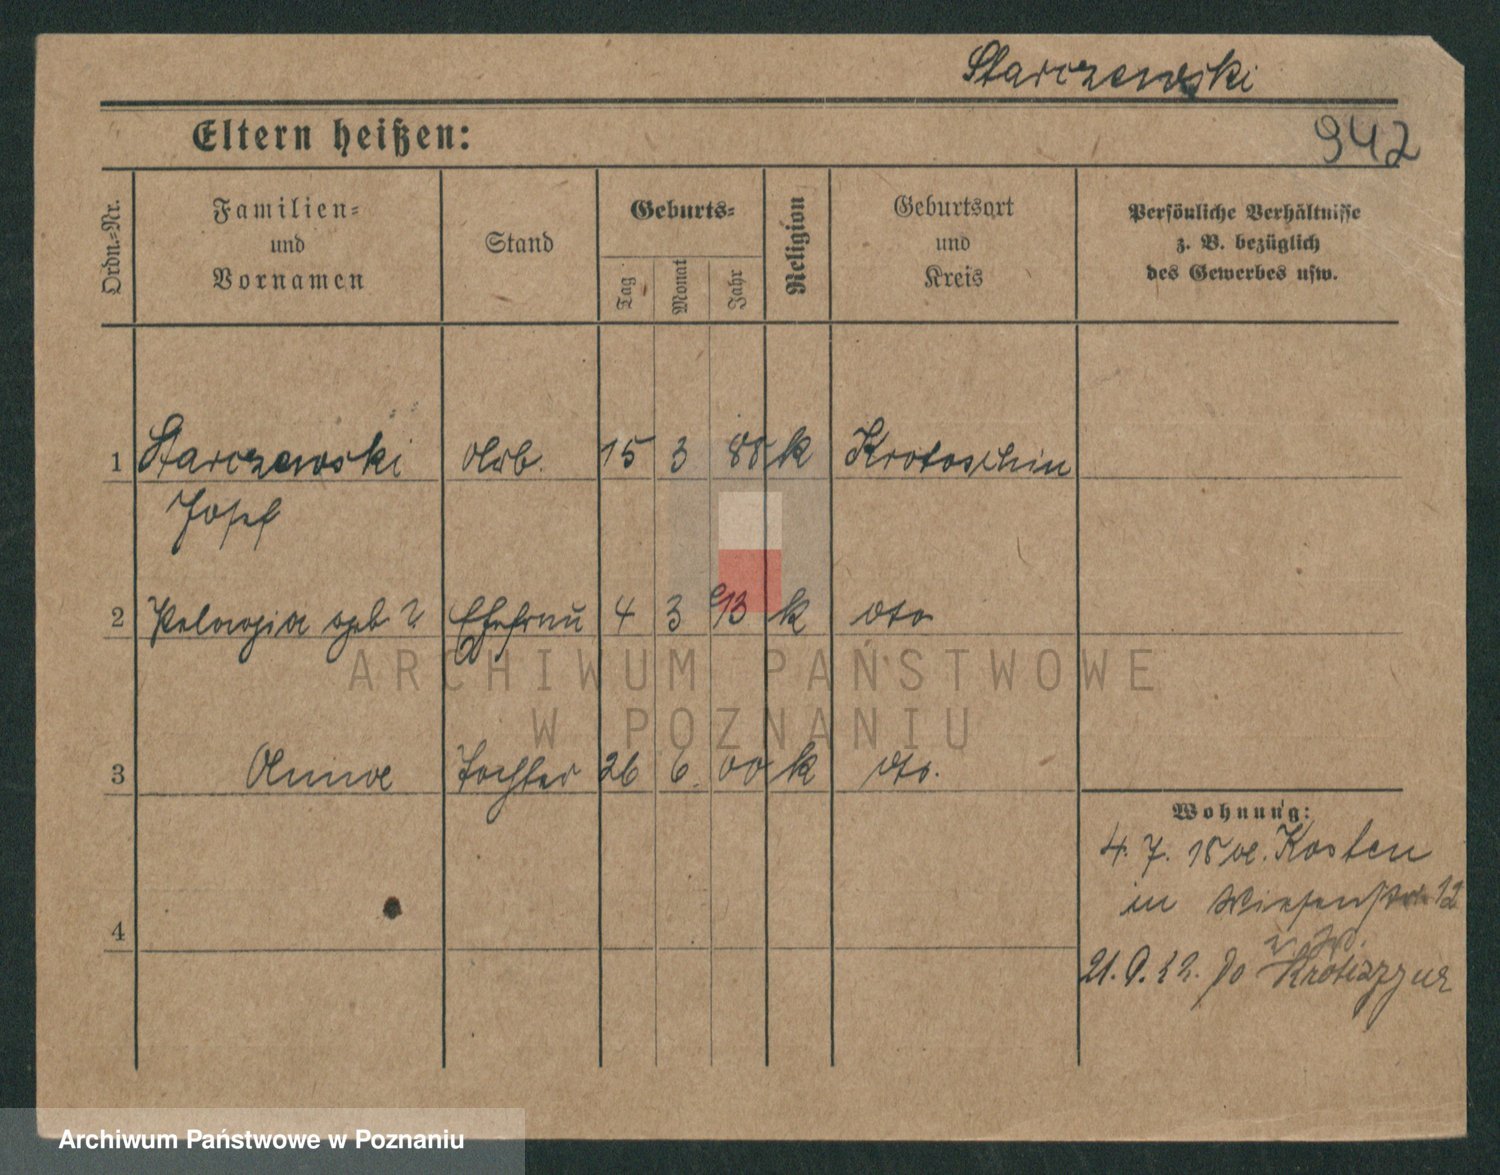 Starczewski
942
Eltern heißen:
Ordn.-Nr.
Familien-
und
Vornamen
Stand
Geburts-
Tag
Monat
Jahr
Religion
Geburtsort
und
Kreis
Persönliche Verhältnisse
z. B. bezüglich
des Gewerbes usw.
1 Starczewski Arb. 15 3 88 k Krotoschin
Josef
2 Pelagia geb. ? Ehefrau 4 3 93 k dto
3 Anna Tochter 26 6. 00 k dto.
4
Wohnung:
4. 7. 18 a. Kosten
in Wiesenstr 12
21. 9. 22.
ARCHIWUM PAŃSTWOWE
W POZNANIU
Archiwum Państwowe w Poznaniu